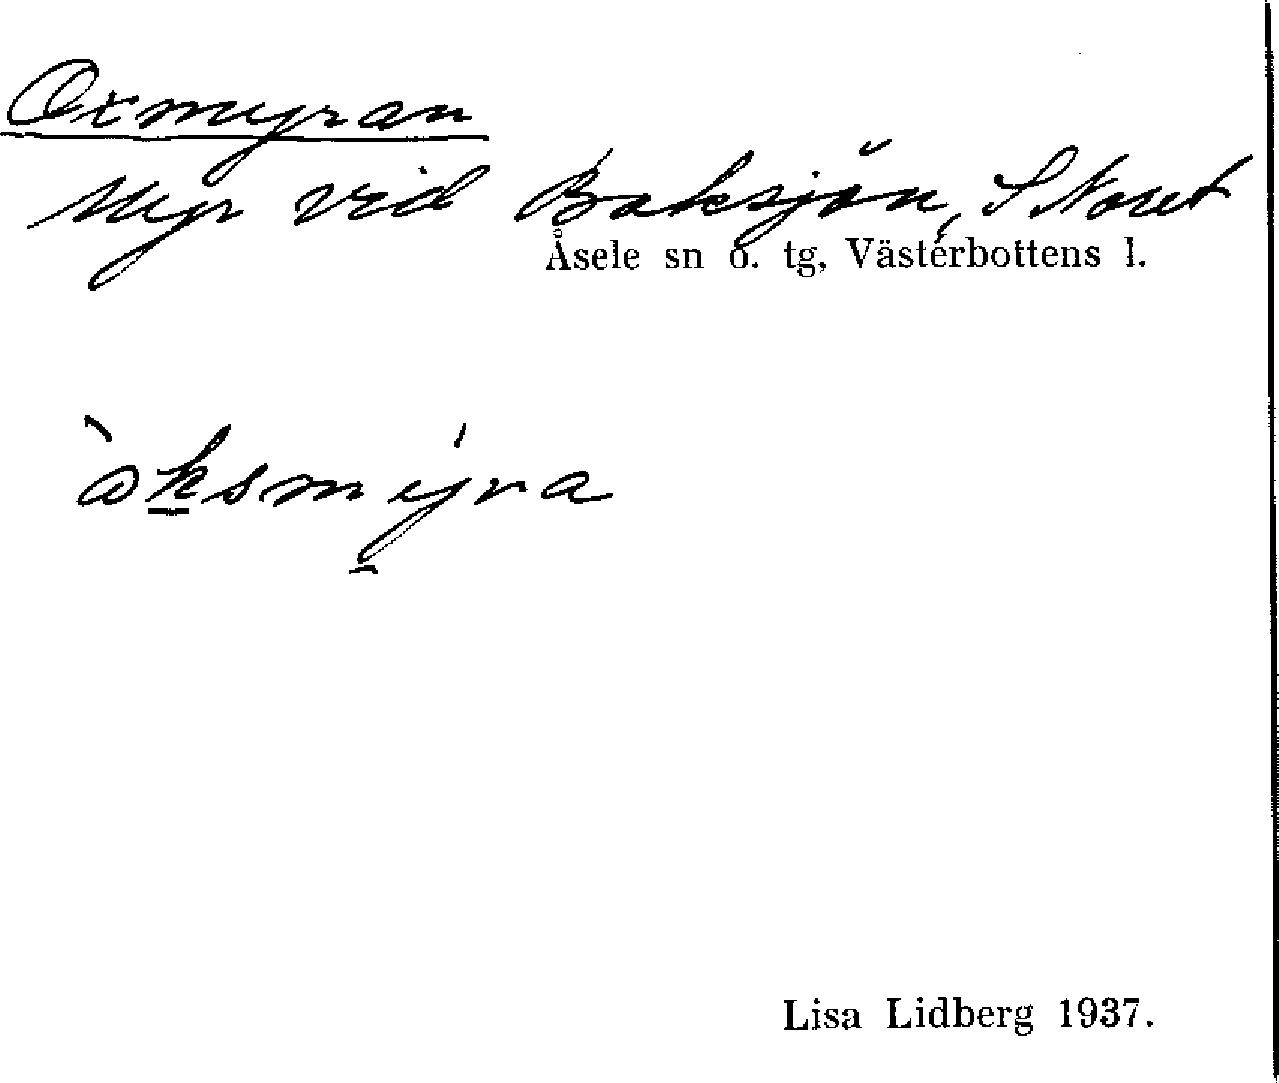 Oxmyran
Myr vid Baksjön, S Noret
Åsele sn o. tg, Västerbottens l.
òksmýra
Lisa Lidberg 1937.